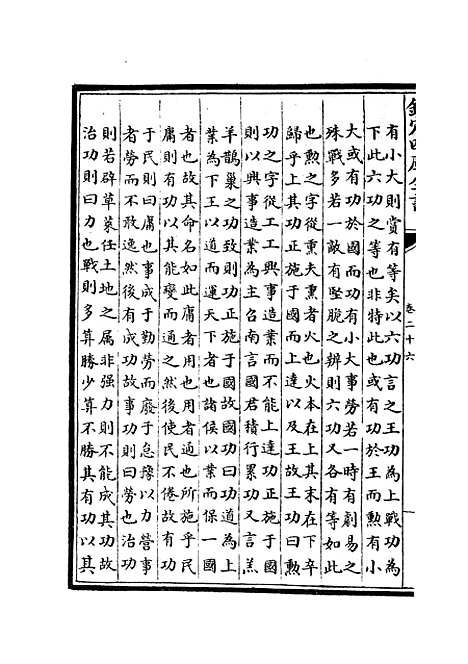 欽定四庫全書
卷二十六
有小大則賞有等矣以六功言之王功為上戰功為
下此六功之等也非特此也或有功於王而勲有小
大或有功於國而功有小大事勞若一時有劇易之
殊戰多若一敵有堅脆之辨則六功又各有等如此
也勲之字從熏夫熏者火也火本在上其末在下卒
歸乎上其功正施于國而上達以及王故王功曰勲
功之字從工工興事造業而不能上達功正施于國
則以興事造業為主召南言國君積行累功又言羔
羊鵲巢之功致則功正施于國故國功曰功道為上
業為下王以道而運天下者也諸侯以業而保一國
者也故其命名如此庸者用也用者通也所施乎民
庸則有功以其能變而通之然後使民不倦故有功
于民則曰庸也事成于勤勞而廢于怠豫以力營事
者勞而不敢逸然後有成功故事功則曰勞也治功
則若辟草萊任土地之屬非强力則不能成其功故
治功則曰力也戰則多算勝少算不勝其有功以其